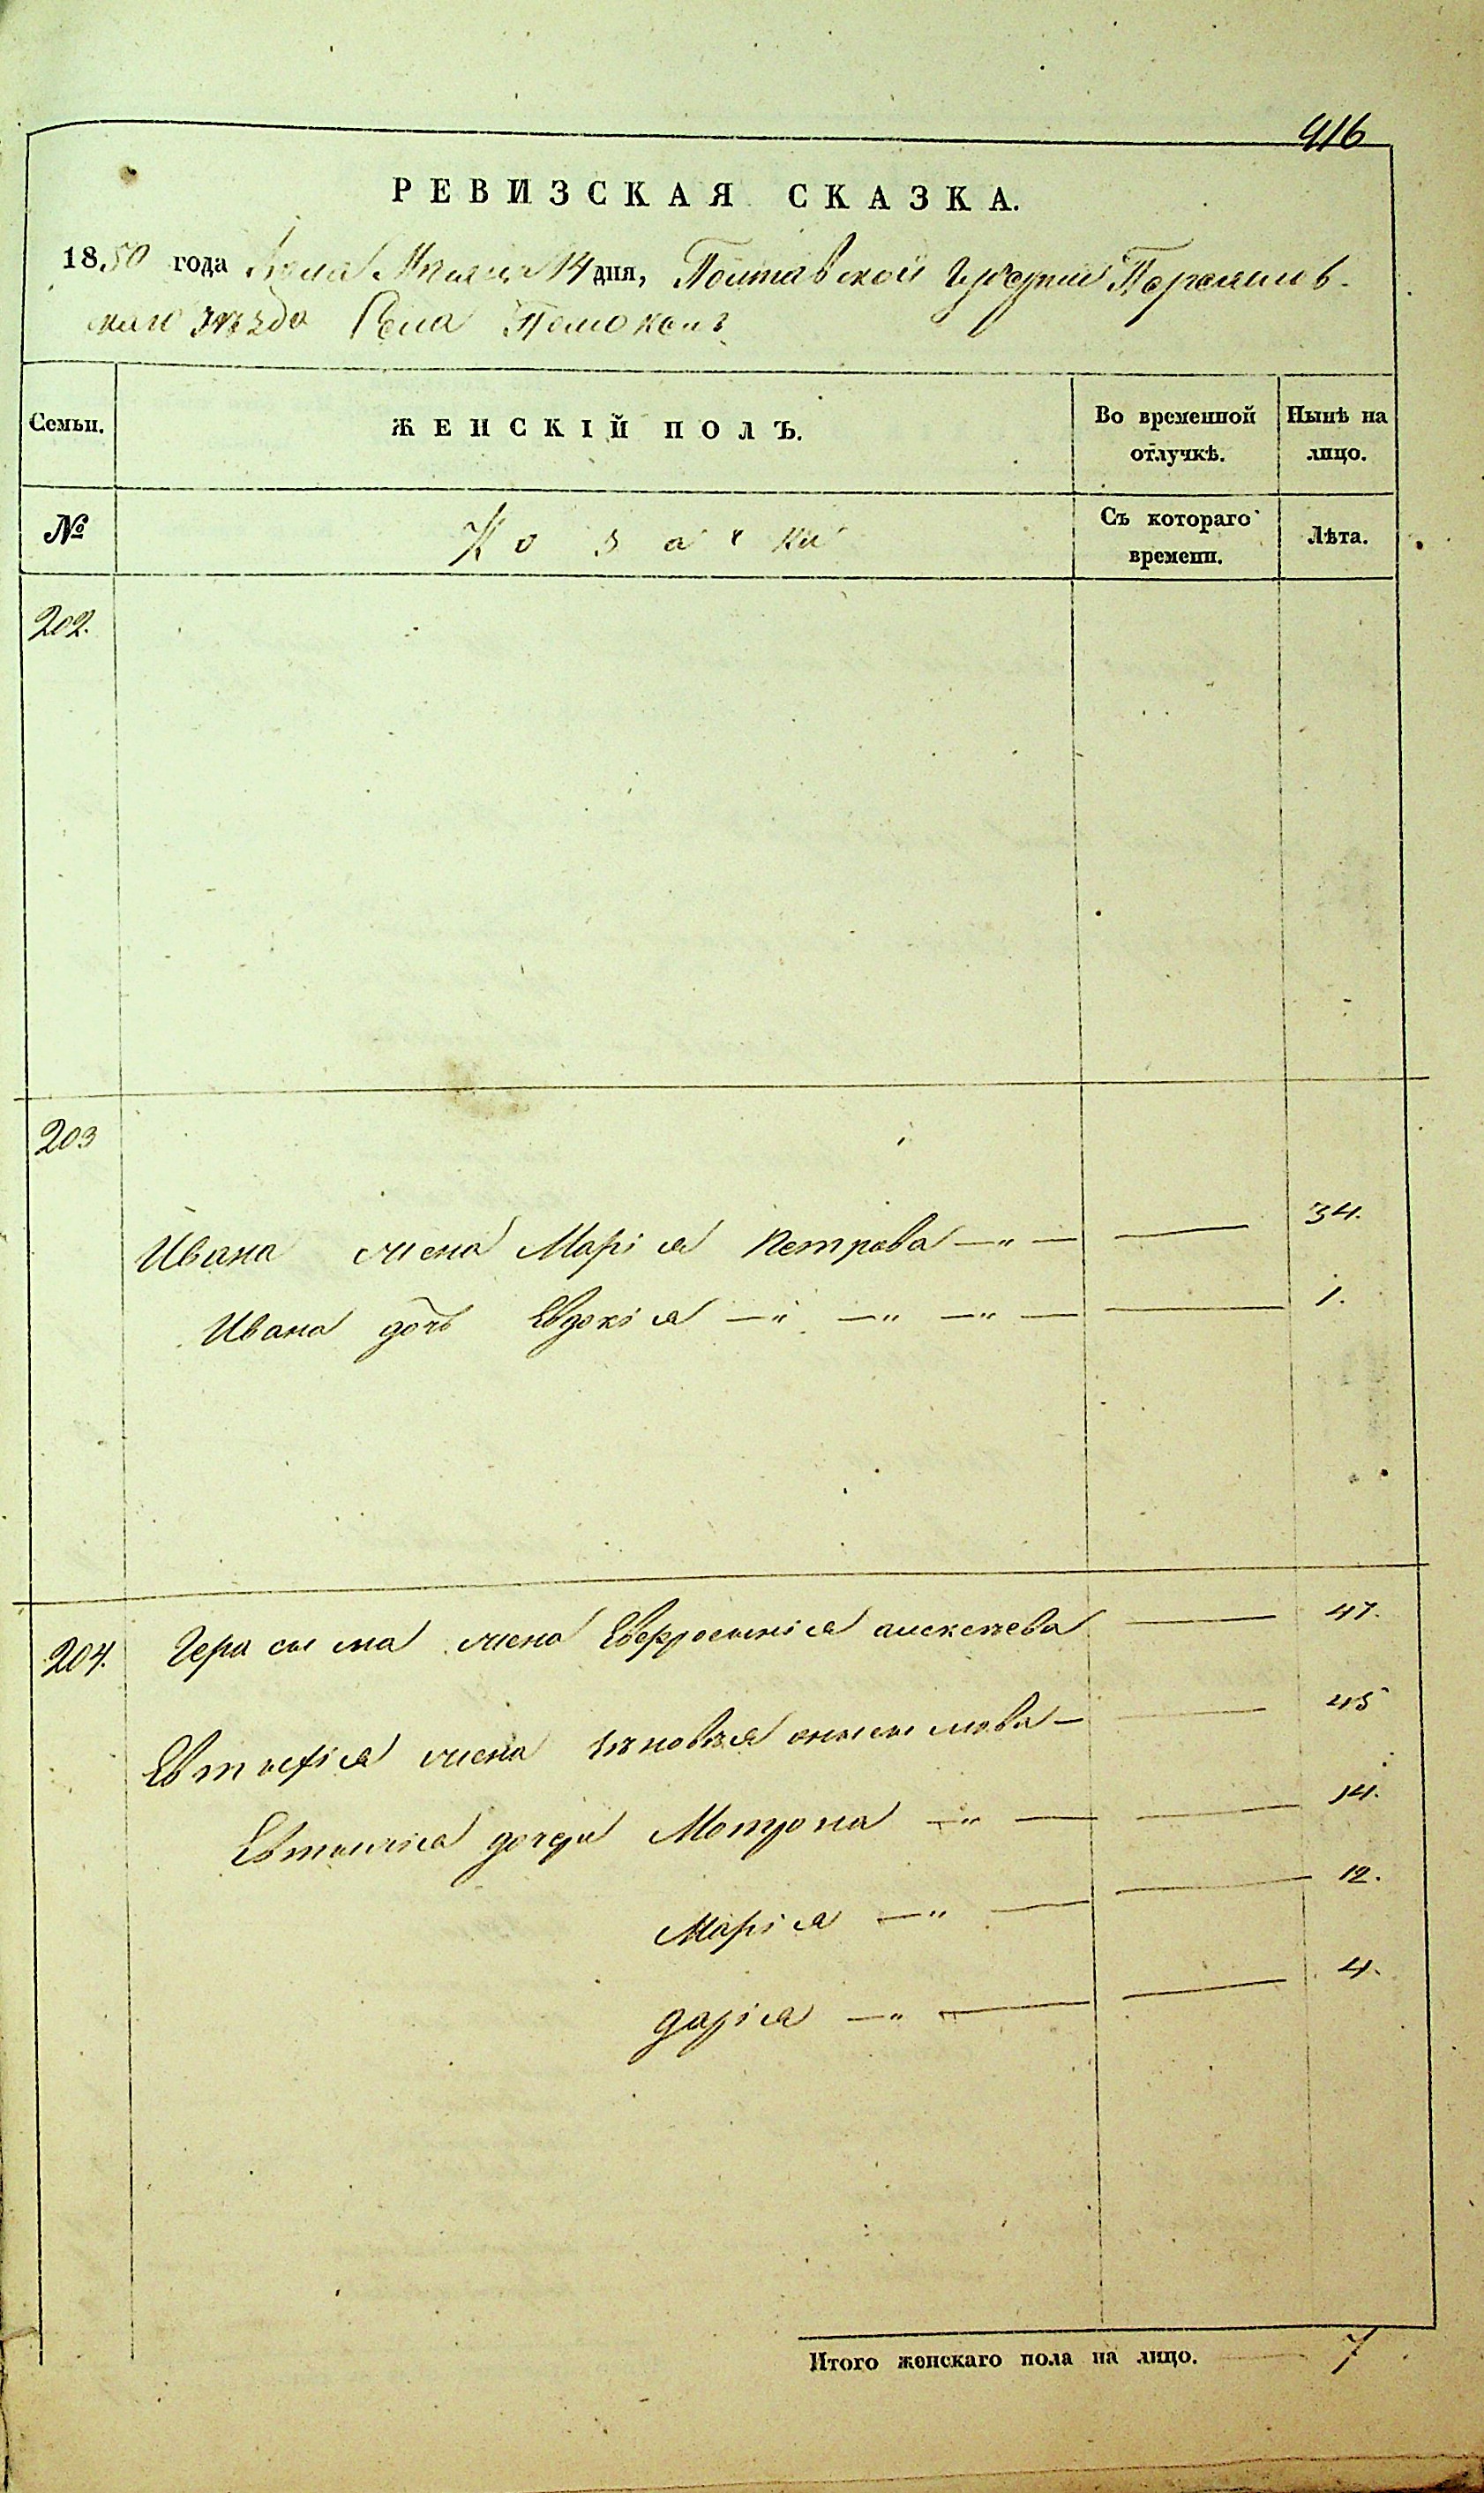 416
РЕВИЗСКАЯ СКАЗКА.
1850 года 14 дня, Полтавской Губерніи Переяслов-
скаго уѣзда Села Помоклей
Семьи.
ЖЕНСКІЙ ПОЛЪ.
Во временной отлучкѣ.
Нынѣ на лицо.
№
Козачки
Съ котораго времени.
Лѣта.
202.
203
Ивана жена Марія Петрова —„— — 34.
Ивана дочь Евдокія —„ —„ —„ — — 1.
204. Герасима жена Евфросинія алексѣева — 47.
Евтихія жена онисимова — — 45
Евтихія дочери Мотрона —„ — — 14.
Марія —„ — — 12.
дарія —„ — — 4.
Итого женскаго пола на лицо. 7